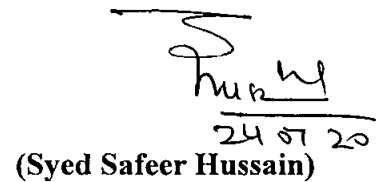 24 07 20
(Syed Safeer Hussain)